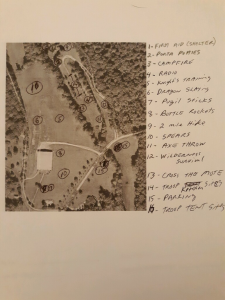 1 - FIRST AID (SHELTER)
2 - PORTA POTTIES
3 - CAMPFIRE
4 - RADIO
5 - KNIGHTS TRAINING
6 - DRAGON SLAYING
7 - PUGIL STICKS
8 - BOTTLE ROCKETS
9 - 2 MILE HIKE
10 - SPEARS
11 - AXE THROW
12 - WILDERNESS SURVIVAL
13 - CROSS THE MOTE
14 - TROOP SITES
15 - PARKING
TROOP TENT SITES